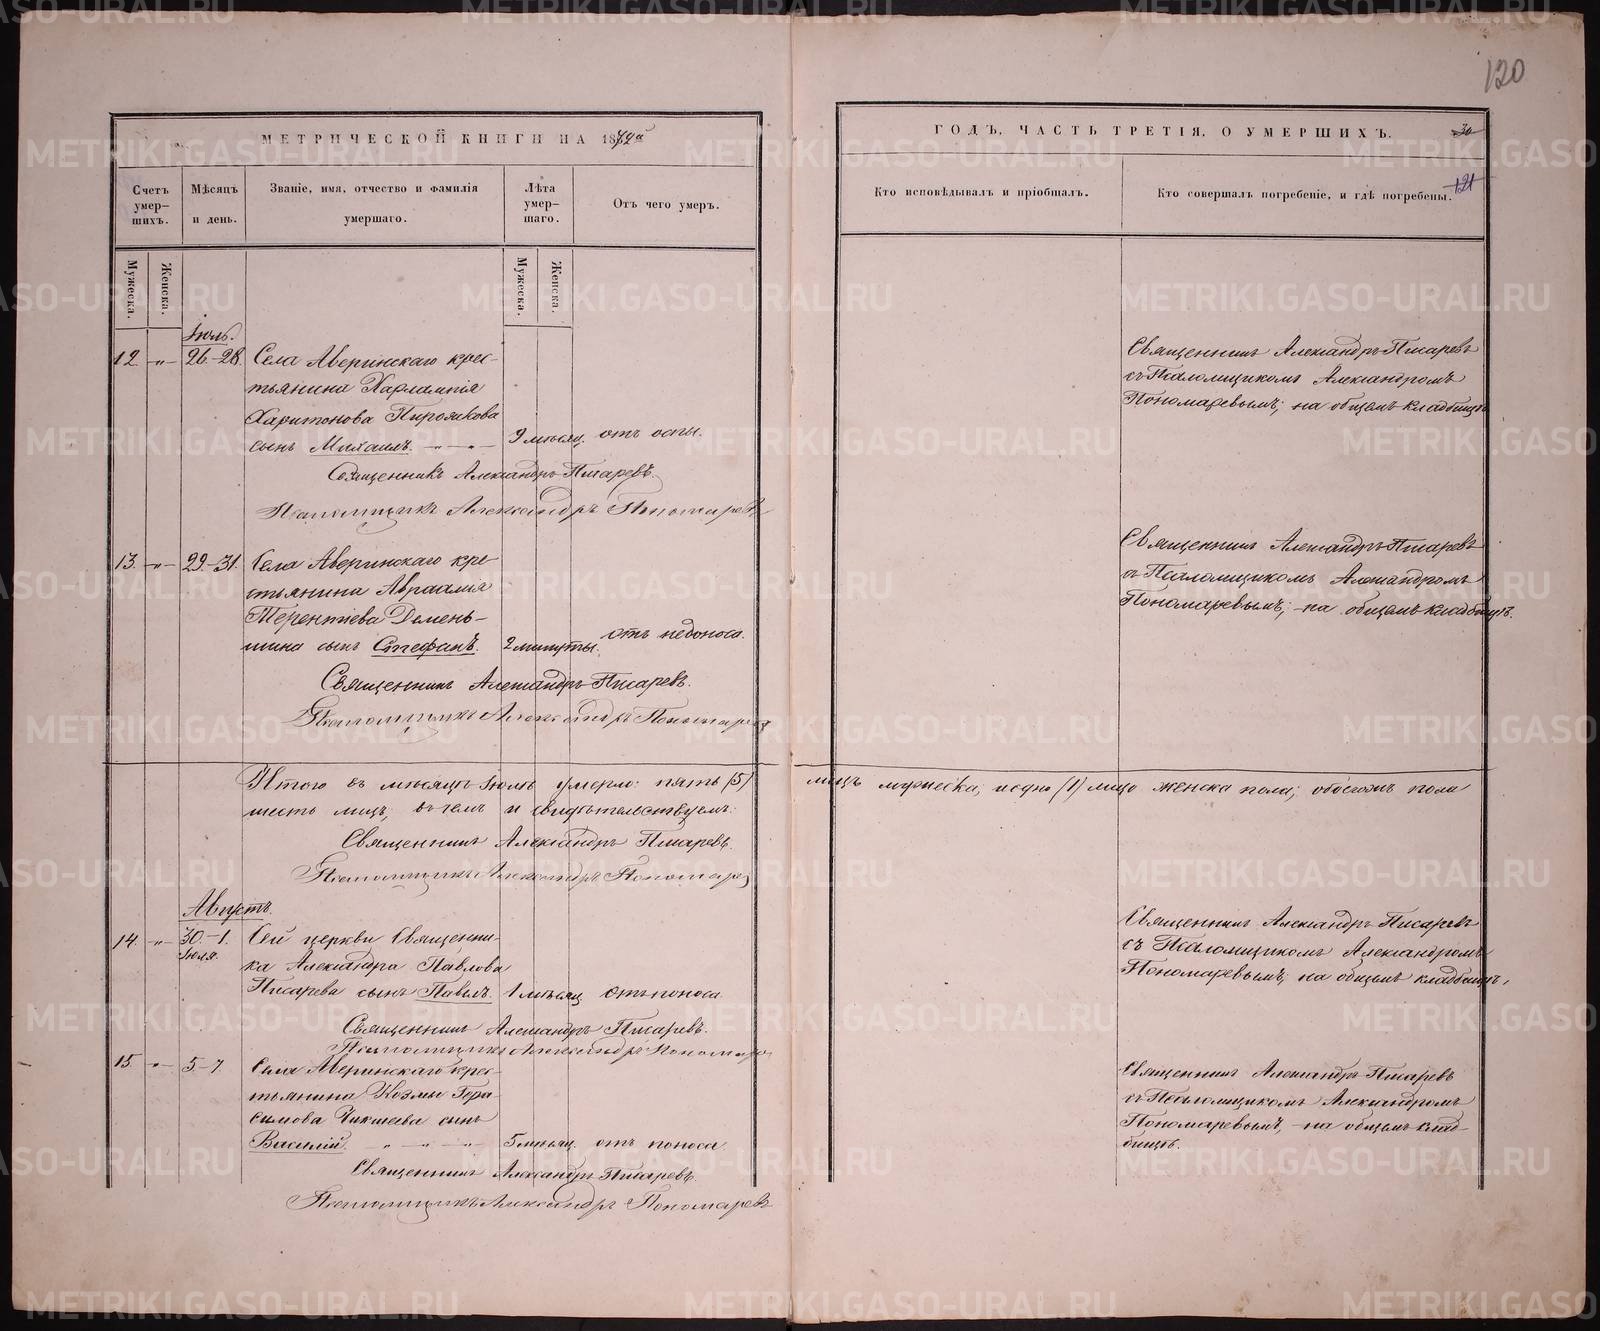 МЕТРИЧЕСКОЙ КНИГИ НА 18
Счетъ умер-шихъ.
Мѣсяцъ и день.
Званіе, имя, отчество и фамилія умершаго.
Лѣта умер-шаго.
Отъ чего умеръ.
Мужеска.
Женска.
Мужеска.
Женска.
Іюль.
12. -„- 26.-28. Села Аверинскаго крес-
тьянина Харлампія
Харитонова Пирожкова
сынъ Михаилъ. 9 мѣсяц. отъ оспы.
Священникъ Александръ Писаревъ.
Псаломщикъ Александръ Пономаревъ
13. -„- 29.-31. Села Аверинскаго кре-
стьянина Авраамія
Терентіева Демень-
шина сынъ Стефанъ. 2 минуты. отъ недоноса.
Священникъ Александръ Писаревъ.
Псаломщикъ Александръ Пономаревъ
Итого въ мѣсяцѣ Іюлѣ умерло: пять (5)
шесть лицъ; въ чемъ и свидѣтельствуемъ:
Священникъ Александръ Писаревъ.
Псаломщикъ Александръ Пономарев
Августъ.
14. -„- 30.-1. Сей церкви Священни-
Іюля.
ка Александра Павлова
Писарева сынъ Павелъ. 1 мѣсяц отъ поноса
Священникъ Александръ Писаревъ.
Псаломщикъ Александръ Пономарев
15. -„- 5.-7. Села Аверинскаго крес-
тьянина Козмы Гера-
симова сынъ
Василій. 5 мѣсяц. отъ поноса
Священникъ Александръ Писаревъ.
Псаломщикъ Александръ Пономаревъ
120
ГОДЪ, ЧАСТЬ ТРЕТІЯ, О УМЕРШИХЪ.
30
121
Кто исповѣдывалъ и пріобщалъ.
Кто совершалъ погребеніе, и гдѣ погребены.
Священникъ Александръ Писаревъ
съ Псаломщикомъ Александромъ
Пономаревымъ; на общемъ кладбищѣ
Священникъ Александръ Писаревъ
съ Псаломщикомъ Александромъ
Пономаревымъ; на общемъ кладбищѣ.
лицъ мужеска; и одно (1) лицо женска пола; обоего пола
Священникъ Александръ Писаревъ
съ Псаломщикомъ Александромъ
Пономаревымъ; на общемъ кладбищѣ,
Священникъ Александръ Писаревъ
съ Псаломщикомъ Александромъ
Пономаревымъ, на общемъ клад-
бищѣ.
METRIKI.GASO-URAL.RU